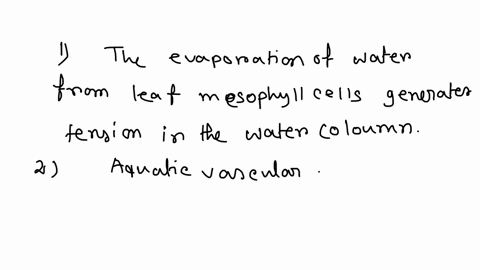 1) The evaporation of water
from leaf mesophyll cells generates
tension in the water coloumn.
2) Aquatic vascular .